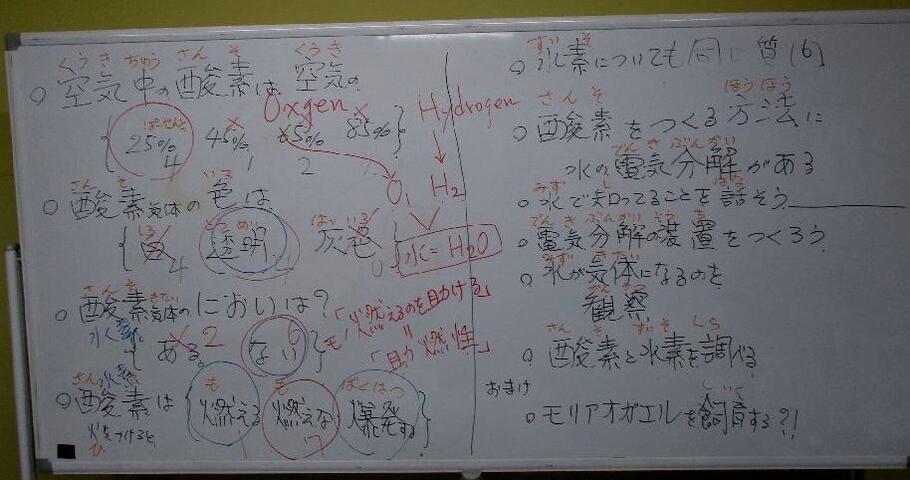 くうき ちゅう さん そ くう き
○ 空気中の酸素は 空気の
Oxgen
ぱーせんと
{ 25% 45% 65% 85% }
4 1 2
Hydrogen
O, H2
水=H2O
さん そ いろ
○ 酸素気体の色は
しろ とうめい はいいろ
{ 白 透明 灰色
4 0
さん そ きたい
○ 酸素気体のにおいは?
水素
{ ある。 ない }
2 6
モノ
「燃えるのを助ける」
〃
「助燃性」
さん 水素 そ
○ 酸素は { 燃える 燃えない 爆発する }
も も ばくはつ
火をつけると
ひ
1 7
すい そ
○ 水素についても同じ質(6)
さん そ ほうほう
○ 酸素をつくる方法に
でんきぶんかい
水の電気分解がある
みず し はな
○ 水で知ってることを話そう
でん き ぶんかい そう ち
○ 電気分解の装置をつくろう
みず きたい
○ 水が気体になるのを
かんさつ
観察
さん そ すいそ くら
○ 酸素と水素を調べる
おまけ
しいく
○ モリアオガエルを飼育する?!